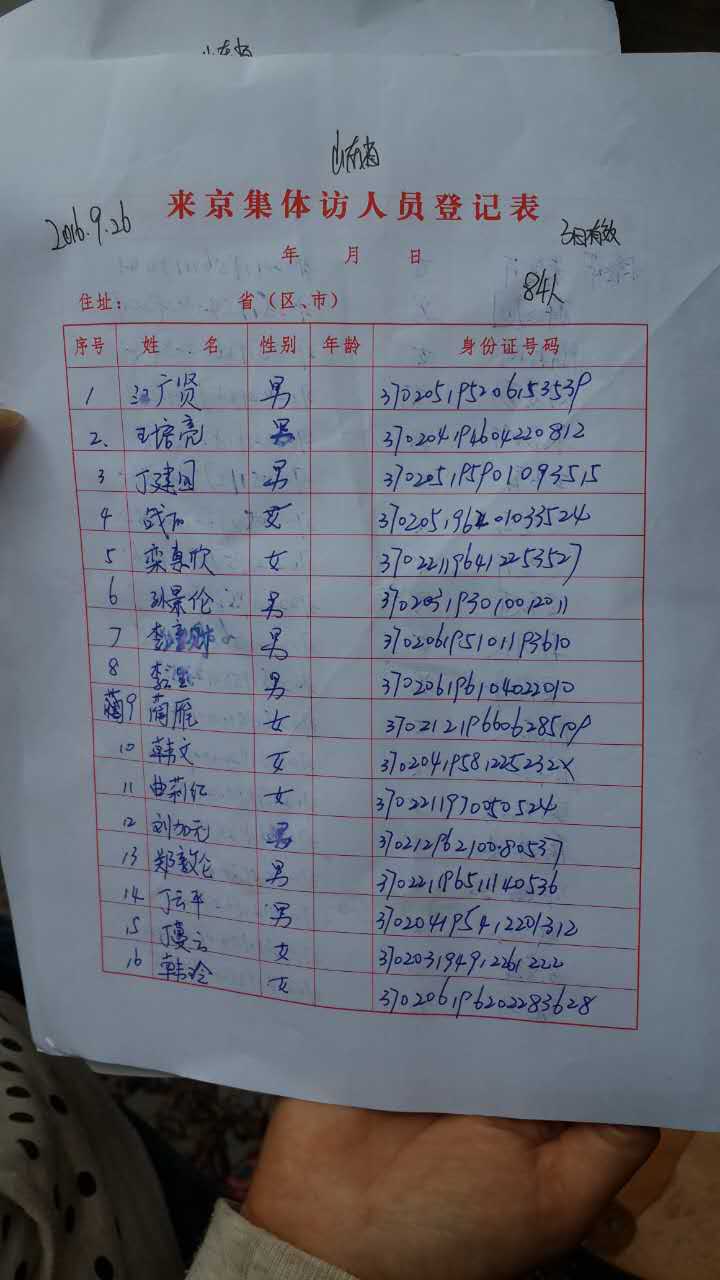 山东省
来京集体访人员登记表
2016.9.26
三日有效
年 月 日
84人
住址： 省（区、市）
序号 姓 名 性别 年龄 身份证号码
1 江广贤 男 370205195206153539
2. 王培亮 男 370204194604220812
3 丁建国 男 370205195901093515
4 女
5 栾惠欣 女 370221196412253527
6 孙景伦 男 370203193010012011
7 男 370206195101193610
8 男 370206196104022010
蔺 9 蔺雁 女
10 韩文 女 37020419581225232X
11 曲莉红 女
12 男
13 郑敦仑 男 370221196511140536
14 丁云平 男 370204195412201312
15 丁 女 370203194912261222
16 韩玲 女 370206196202283628